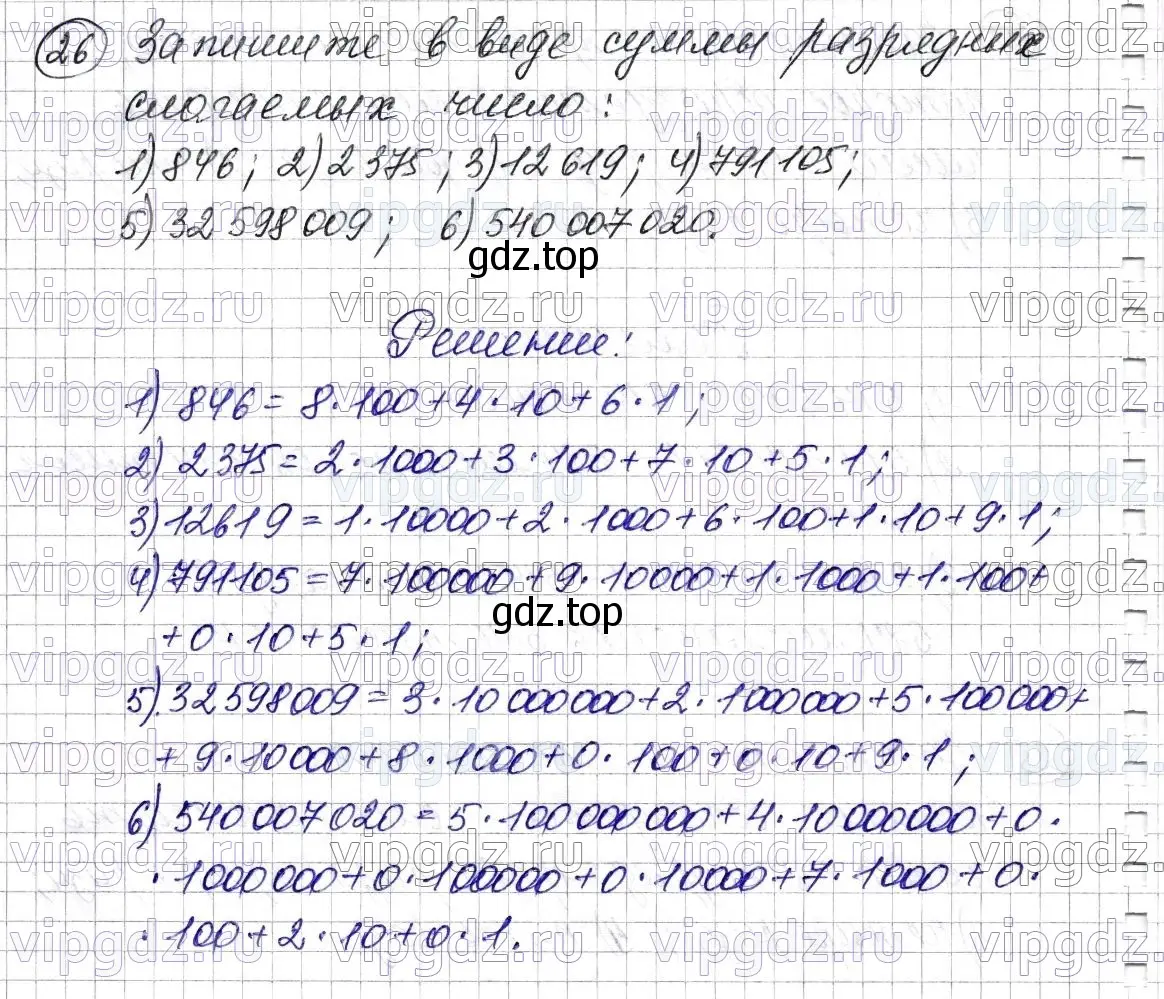 26 Запишите в виде суммы разрядных
слагаемых число:
1) 846; 2) 2 375; 3) 12 619; 4) 791 105;
5) 32 598 009; 6) 540 007 020.
gdz.top
Решение:
1) 846 = 8·100+4·10+6·1;
2) 2 375 = 2·1000+3·100+7·10+5·1;
3) 12619 = 1·10000+2·1000+6·100+1·10+9·1;
4) 791105 = 7·100000+9·10000+1·1000+1·100+
gdz.top
+0·10+5·1;
5) 32 598 009 = 3·10 000 000+2·1000 000+5·100 000+
+9·10 000+8·1000+0·100+0·10+9·1;
6) 540 007 020 = 5·100 000 000+4·10 000 000+0·
·1000 000+0·100000+0·10000+7·1000+0·
·100+2·10+0·1.
vipgdz.ru